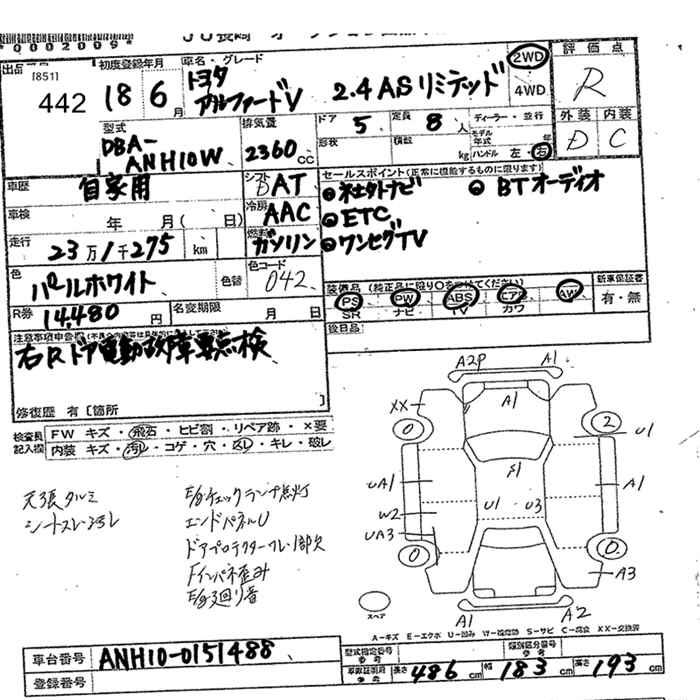 *0002009*
出品 [851] 442
初度登録年月 18 6月
車名・グレード トヨタ アルファードV 2.4 AS リミテッド
2WD 4WD
評価点 R
外装 内装
D C
型式 DBA-ANH10W
排気量 2360cc
ドア 5 定員 8人
形状 積数 kg
ディーラー・並行
モデル年式 年
ハンドル 左・右
車歴 自家用
シフト DAT
冷房 AAC
車検 年 月( 日)
走行 23万1千275 km
燃料 ガソリン
セールスポイント(正常に機能するものに限ります)
社外ナビ BTオーディオ
ETC
ワンセグTV
色 パールホワイト
色替
色コード 042
R券 14,480円
名変期限 月 日
装備品(純正品に限り○をつけてください)
PS PW ABS エアB AW
SR ナビ TV カワ
新車保証書
有・無
後日品
注意事項申告欄
右Rドア電動故障要点検
修復歴 有 [箇所 ]
検査員記入欄
FW キズ・飛石・ヒビ割・リペア跡・×要
内装 キズ・汚レ・コゲ・穴・スレ・キレ・破レ
天張タルミ
シートスレ・汚レ
E/gチェックランプ点灯
エンドパネルU
ドアプロテクターワレ・1部欠
Fインパネ歪み
E/g廻り音
A2P A1
XX A1
0 2 U1
S1
UA1 A1
W2 U1 U3
UA3
0 0
A3
スペア
A1 A2
A-キズ E-エクボ U-凹み W-補修跡 S-サビ C-腐食 XX-交換済
車台番号 ANH10-0151488
登録番号
型式指定番号 参考
類別区分番号 参考
車検証明細 参考 長さ 486cm 幅 183cm 高さ 193cm